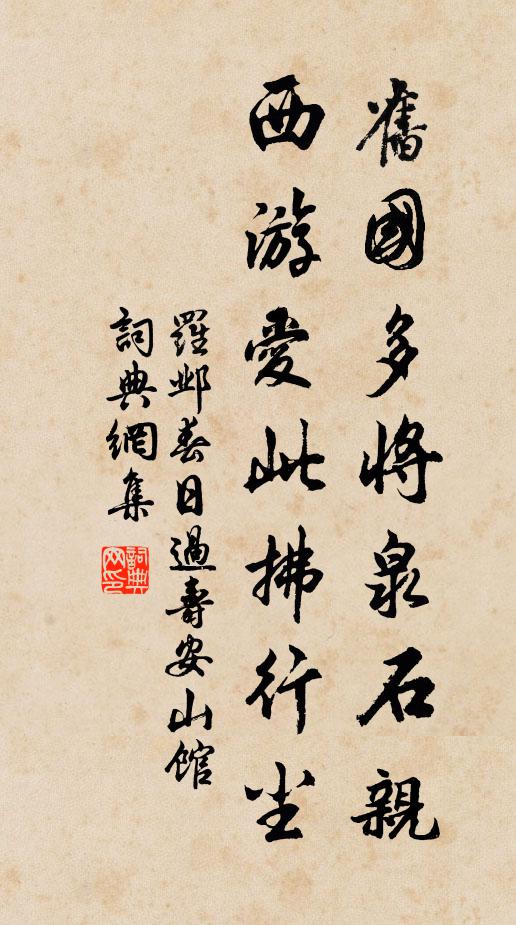 舊國多將泉石親
西游愛此拂行尘
羅邺春日過壽安山館
詞典網集
詞典网印